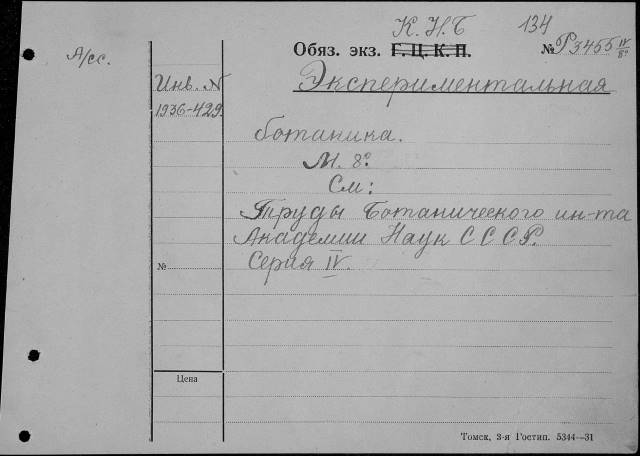 К. Н. Б 134
А/сс.
Обяз. экз. Г. Ц. К. П. № Р3455 IV/8°
Инв. N
1936-429.
Экспериментальная
ботаника.
М. 8°.
См:
Труды Ботанического ин-та
Академии Наук СССР.
Серия IV.
№
Цена
Томск, 3-я Гостип. 5344—31